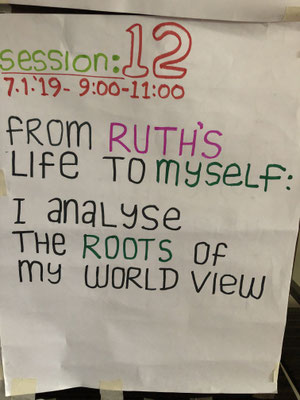 session: 12
7.1.'19- 9:00-11:00
FROM RUTH'S
LIFE TO myself:
I analyse
THE ROOTS Of
my WORLD VIEW